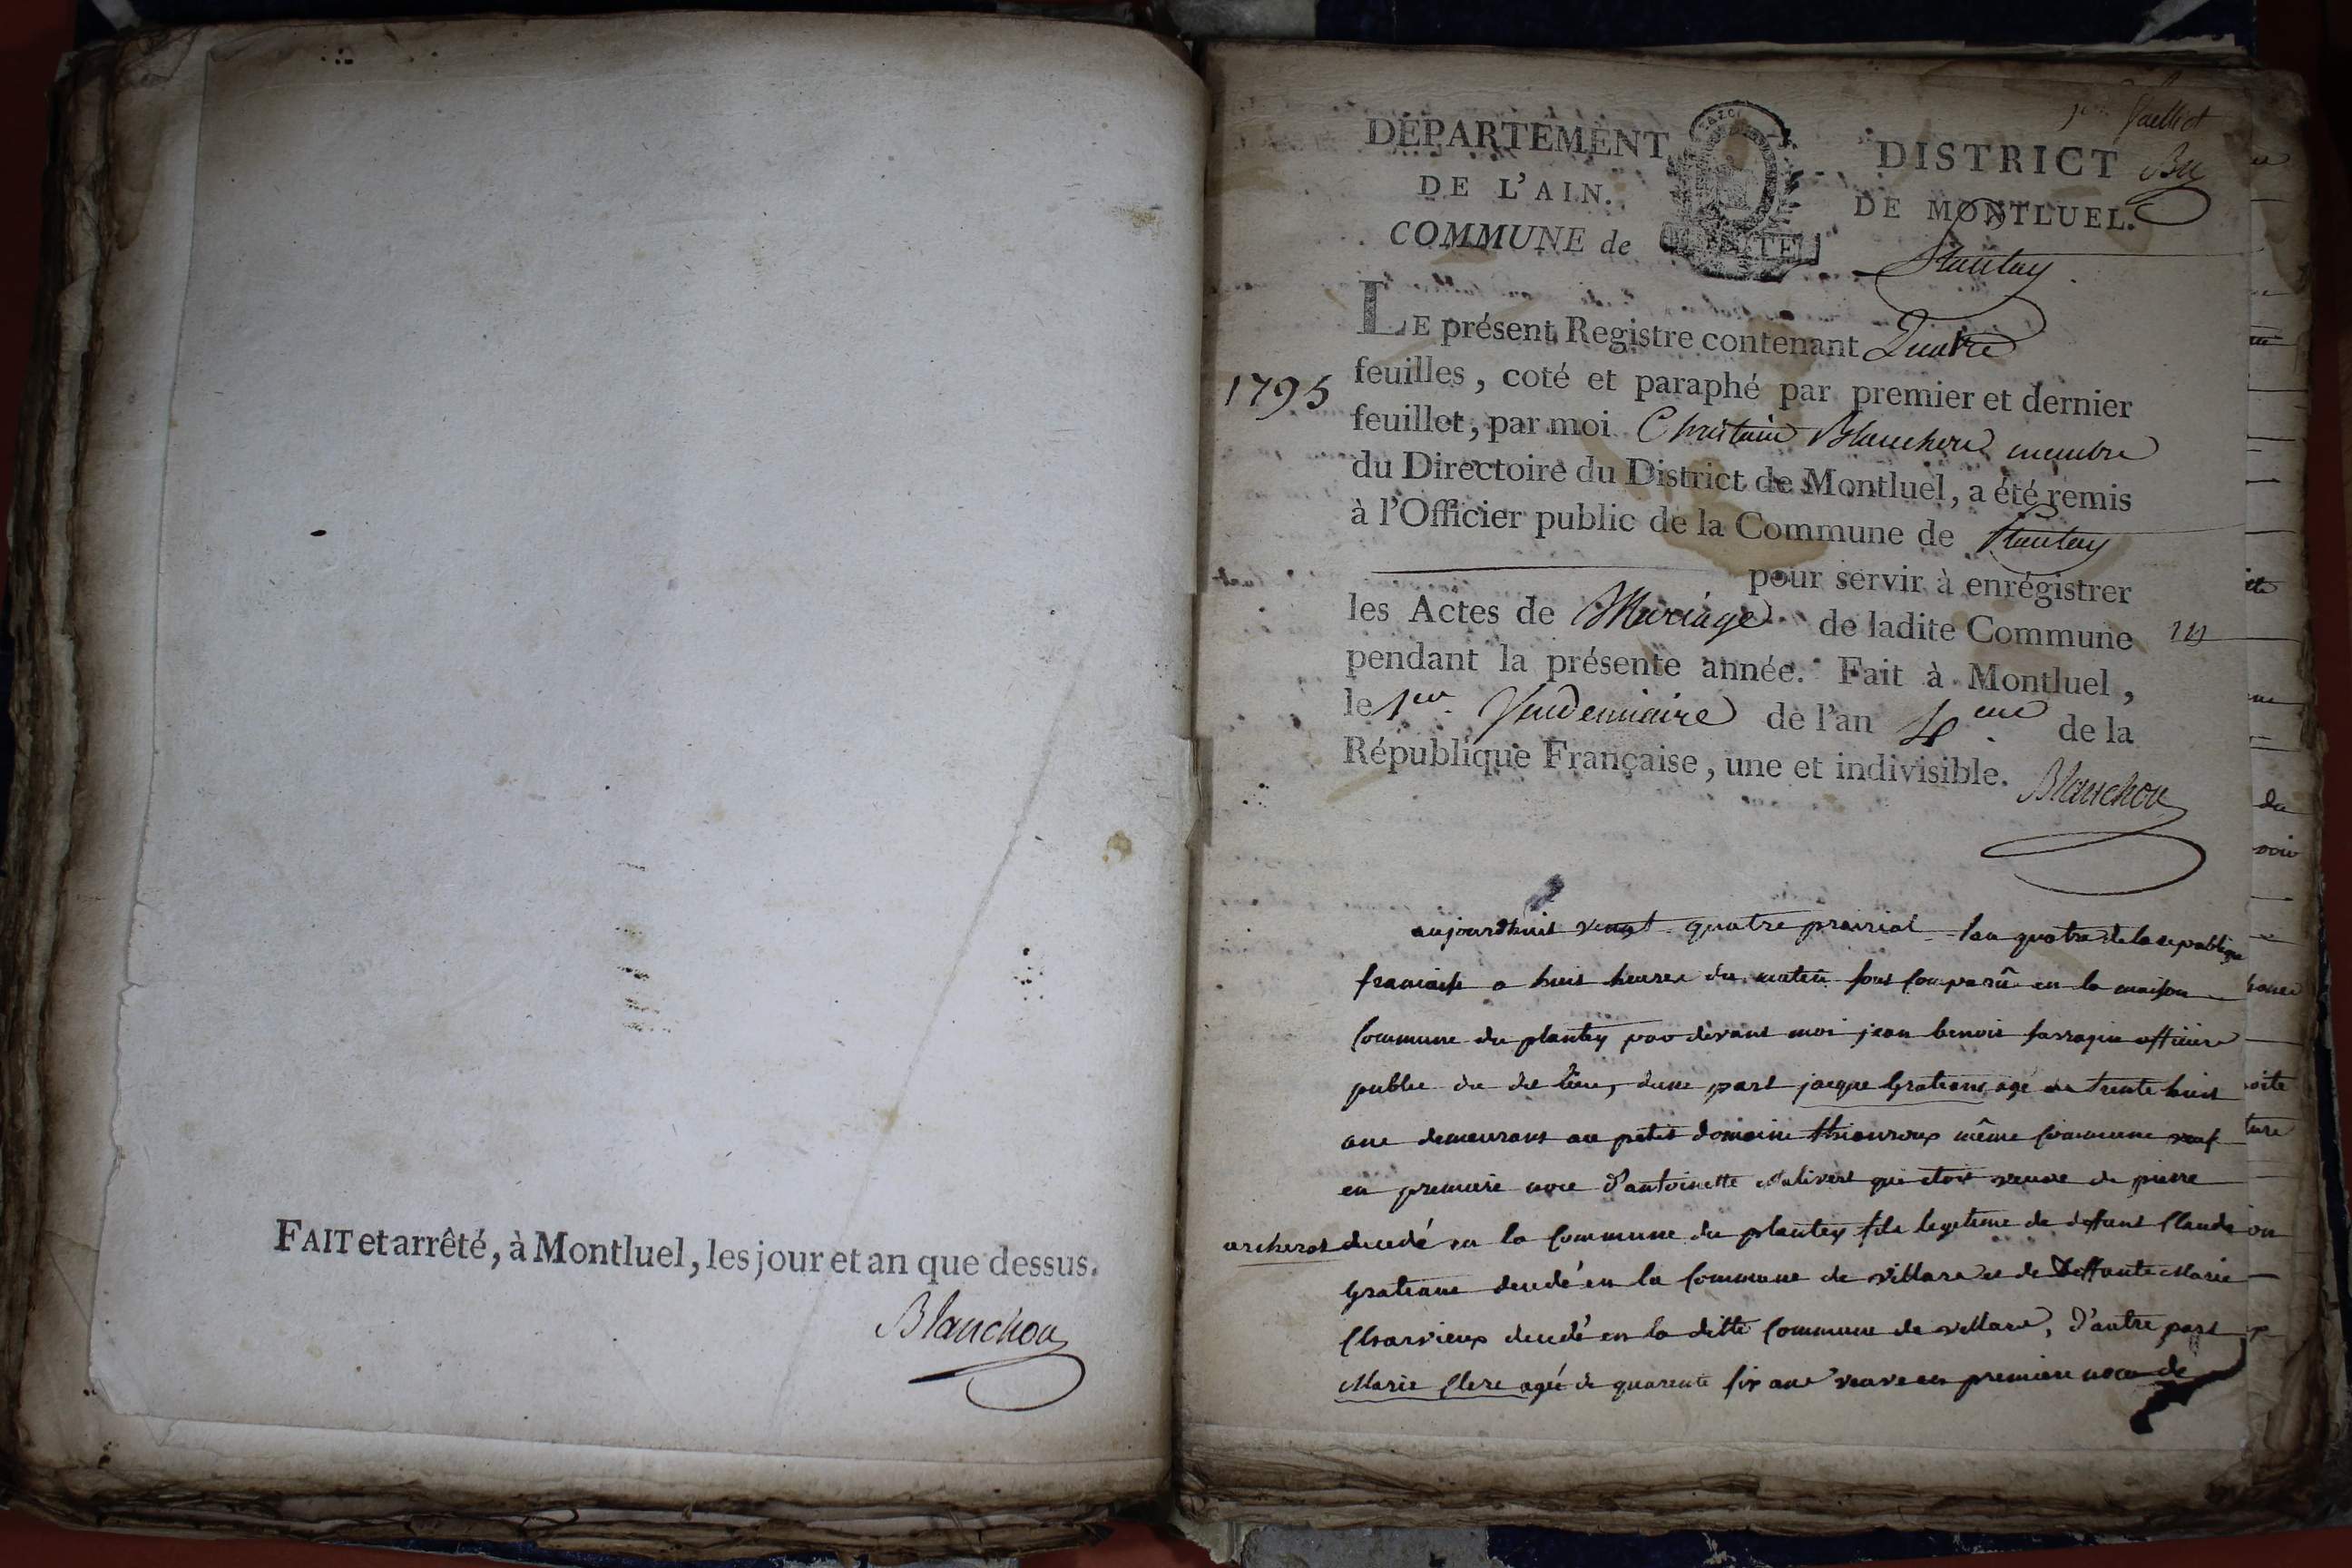 FAIT et arrêté, à Montluel, les jour et an que dessus.
Blanchon
1er feuillet
DÉPARTEMENT
DE L'AIN.
COMMUNE de
DISTRICT
DE MONTLUEL.
Plantay
LE présent Registre contenant Quatre
1795
feuilles, coté et paraphé par premier et dernier
feuillet, par moi Blanchon membre
du Directoire du District de Montluel, a été remis
à l'Officier public de la Commune de Plantay
pour servir à enrégistrer
les Actes de Mariage de ladite Commune
pendant la présente année. Fait à Montluel,
le 1er Vendemiaire de l'an 4eme de la
République Française, une et indivisible.
Blanchon
aujourdhuit vingt quatre prairial lan quatre de la republique
francaise a huit heures du matin sont comparû en la maison
commune du plantey par devant moi jean benoit farragin officier
public du dit lieu, dune part jacque gratians agé de trente huit
ans demeurant au petit domaine même commune veuf
en premiere noce d'antoinette malivert qui etoit veuve de pierre
archerat decedé en la commune du plantey fils legitime de deffunt Claude
gratians decedé en la commune de villars et de deffunte Marie
Charvieux decedé en la ditte commune de villars, d'autre part
Marie Clerc agée de quarente six ans veuve en premiere noce de